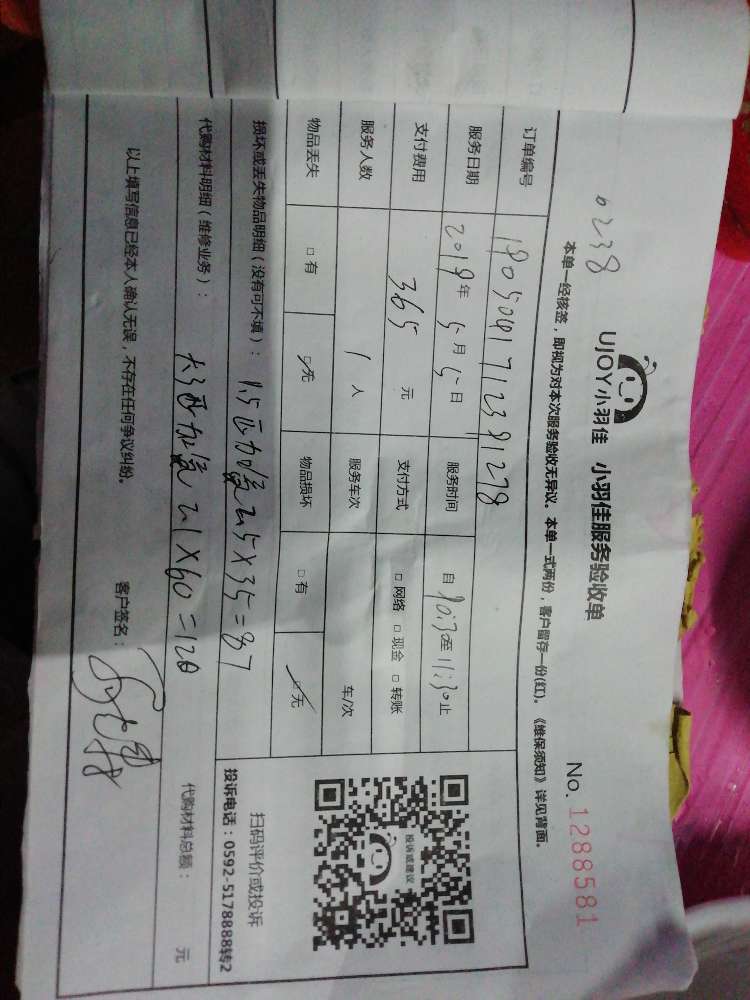 0238
UJOY小羽佳 小羽佳服务验收单
No. 1288581
本单一经核签，即视为对本次服务验收无异议。本单一式两份，客户留存一份(红)。《维保须知》详见背面。
订单编号
服务日期 2019年5月5日 服务时间 自 10:30至 11:30止
支付费用 365 元 支付方式 □ 网络 □ 现金 □ 转账
服务人数 1 人 服务车次 车/次
物品丢失 □ 有 □ 无 物品损坏 □ 有 □ 无
损坏或丢失物品明细（没有可不填）： 1.5匹加氟 2.5×35=87
代购材料明细（维修业务）： 大3匹加氟 2.1×60=120
代购材料总额： 元
以上填写信息已经本人确认无误，不存在任何争议纠纷。 客户签名：
投诉或建议
扫码评价或投诉
投诉电话：0592-5178888转2